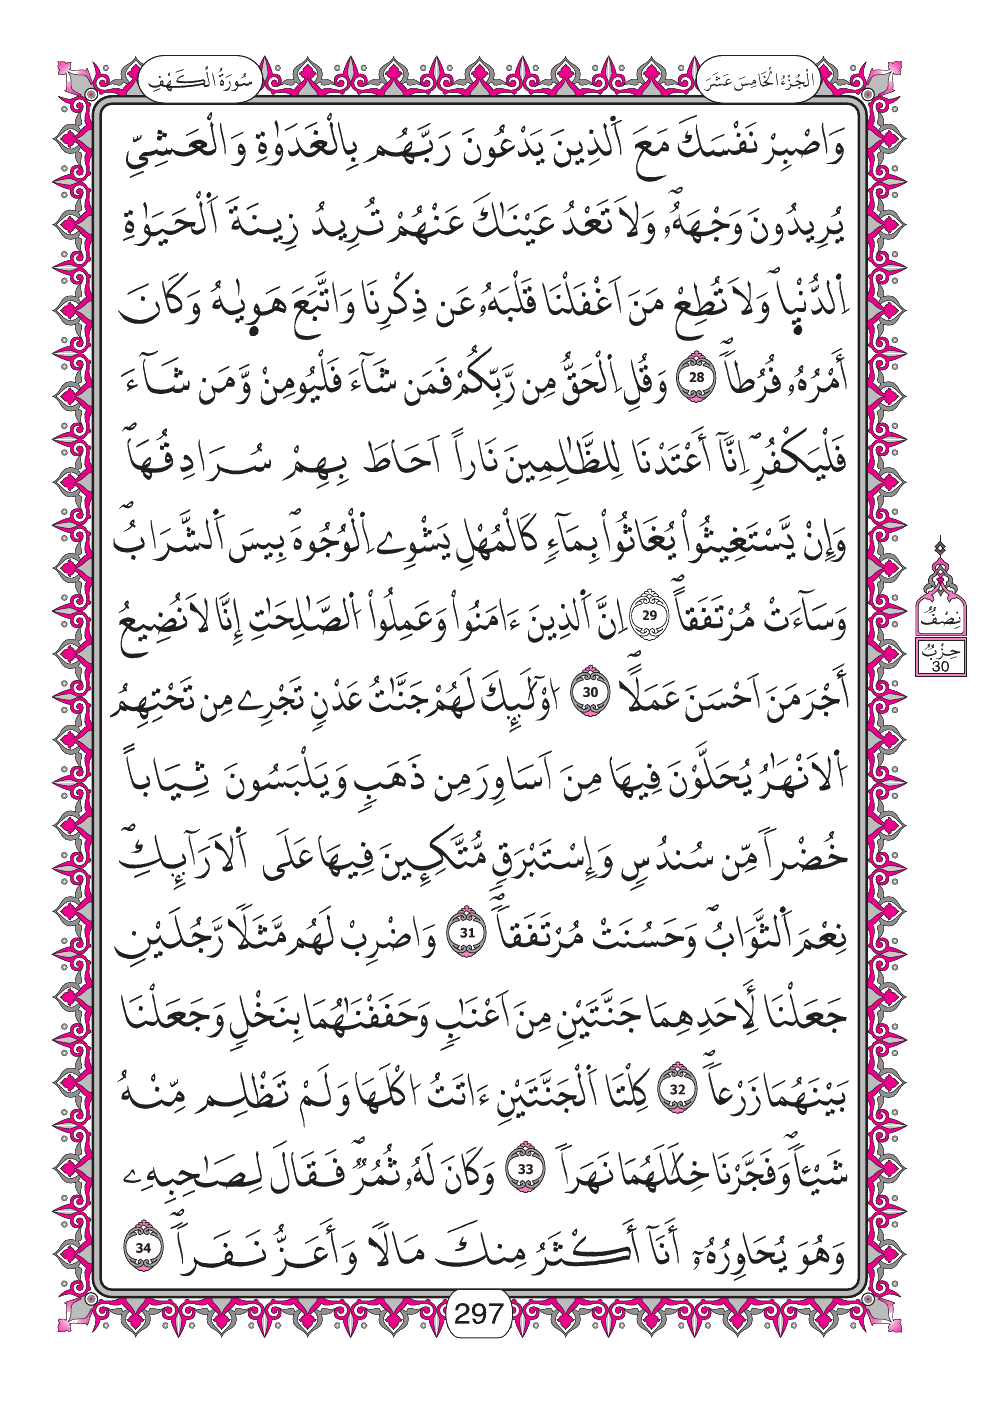 سُورَةُ الْكَهْفِ
الْجُزْءُ الْخَامِسَ عَشَرَ
وَاصْبِرْ نَفْسَكَ مَعَ اَ۬لذِينَ يَدْعُونَ رَبَّهُم بِالْغَدَوٰةِ وَالْعَشِيِّ
يُرِيدُونَ وَجْهَهُۥۖ وَلَا تَعْدُ عَيْنَاكَ عَنْهُمْ تُرِيدُ زِينَةَ اَ۬لْحَيَوٰةِ
اِ۬لدُّنْي۪اۖ وَلَا تُطِعْ مَنَ اَغْفَلْنَا قَلْبَهُۥ عَن ذِكْرِنَا وَاتَّبَعَ هَو۪يٰهُ وَكَانَ
أَمْرُهُۥ فُرُطاٗۖ 28 وَقُلِ اِ۬لْحَقُّ مِن رَّبِّكُمْ فَمَن شَآءَ فَلْيُومِنْ وَّمَن شَآءَ
فَلْيَكْفُرِۖ اِنَّآ أَعْتَدْنَا لِلظَّٰلِمِينَ نَاراً اَحَاطَ بِهِمْ سُرَادِقُهَاۖ
وَإِنْ يَّسْتَغِيثُواْ يُغَاثُواْ بِمَآءٖ كَالْمُهْلِ يَشْوِے اِ۬لْوُجُوهَۖ بِيسَ اَ۬لشَّرَابُۖ
وَسَآءَتْ مُرْتَفَقاًۖ 29 اِنَّ اَ۬لذِينَ ءَامَنُواْ وَعَمِلُواْ اُ۬لصَّٰلِحَٰتِ إِنَّا لَا نُضِيعُ
أَجْرَ مَنَ اَحْسَنَ عَمَلاًۖ 30 اُوْلَٰٓئِكَ لَهُمْ جَنَّٰتُ عَدْنٖ تَجْرِے مِن تَحْتِهِمُ
اُ۬لَانْهَٰرُ يُحَلَّوْنَ فِيهَا مِنَ اَسَاوِرَ مِن ذَهَبٖ وَيَلْبَسُونَ ثِيَاباً
خُضْراٗ مِّن سُندُسٖ وَإِسْتَبْرَقٖ مُّتَّكِـِٕينَ فِيهَا عَلَى اَ۬لَارَآئِكِۖ
نِعْمَ اَ۬لثَّوَابُۖ وَحَسُنَتْ مُرْتَفَقاٗۖ 31 وَاضْرِبْ لَهُم مَّثَلاٗ رَّجُلَيْنِ
جَعَلْنَا لِأَحَدِهِمَا جَنَّتَيْنِ مِنَ اَعْنَٰبٖ وَحَفَفْنَٰهُمَا بِنَخْلٖ وَجَعَلْنَا
بَيْنَهُمَا زَرْعاٗۖ 32 كِلْتَا اَ۬لْجَنَّتَيْنِ ءَاتَتُ اكْلَهَا وَلَمْ تَظْلِم مِّنْهُ
شَيْـٔاٗۖ وَفَجَّرْنَا خِلَٰلَهُمَا نَهَراٗ 33 وَكَانَ لَهُۥ ثُمُرٞۖ فَقَالَ لِصَٰحِبِهِۦ
وَهُوَ يُحَاوِرُهُۥٓ أَنَآ أَكْثَرُ مِنكَ مَالاٗ وَأَعَزُّ نَفَراٗۖ 34
نِصْفُ
حِزْبُ
30
297